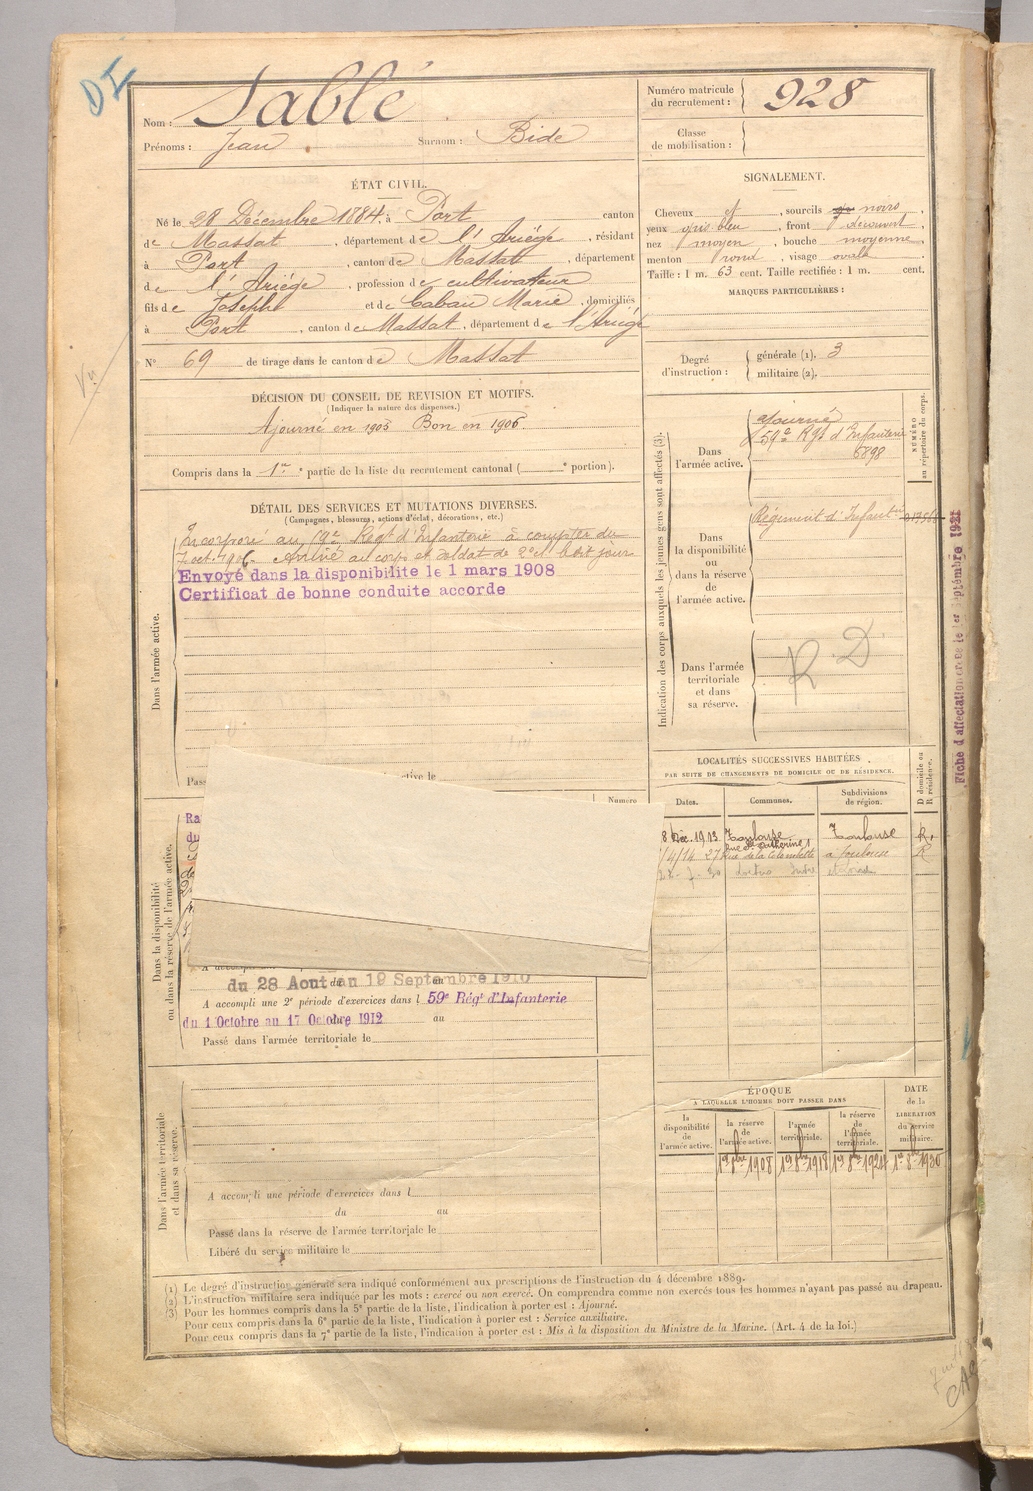 DI
Nom : Sablé
Prénoms : Jean Surnom : Bide
Numéro matricule du recrutement : 928
Classe de mobilisation :
ÉTAT CIVIL.
Né le 28 Décembre 1884, à Port canton
de Massat, département de l'Ariège, résidant
à Port, canton de Massat, département
de l'Ariège, profession de cultivateur
fils de Joseph et de Caban Marie, domiciliés
à Port, canton de Massat, département de l'Ariège
N° 69 de tirage dans le canton de Massat
SIGNALEMENT.
Cheveux et, sourcils noirs,
yeux gris bleu, front découvert,
nez moyen, bouche moyenne,
menton rond, visage ovale
Taille : 1 m. 63 cent. Taille rectifiée : 1 m. cent.
MARQUES PARTICULIÈRES :
Degré d'instruction : générale (1). 3
militaire (2).
DÉCISION DU CONSEIL DE REVISION ET MOTIFS.
(Indiquer la nature des dispenses.)
Ajourné en 1905 Bon en 1906
Compris dans la 1re partie de la liste du recrutement cantonal ( e portion).
DÉTAIL DES SERVICES ET MUTATIONS DIVERSES.
(Campagnes, blessures, actions d'éclat, décorations, etc.)
Incorporé au 59e Régt d'Infanterie à compter du
7 oct. 1906. Arrivé au corps et soldat de 2e cl. le dit jour
Envoyé dans la disponibilite le 1 mars 1908
Certificat de bonne conduite accorde
Dans l'armée active.
Pass
active le
Numéro
Indication des corps auxquels les jeunes gens sont affectés (3).
NUMÉRO au répertoire du corps.
Dans l'armée active.
ajourné
59e Rgt d'Infanterie
6898
Dans la disponibilité ou dans la réserve de l'armée active.
Régiment d'Infant
Dans l'armée territoriale et dans sa réserve.
R.D.
Fiche d'affectation créée le 1er Septembre 1921
LOCALITÉS SUCCESSIVES HABITÉES
PAR SUITE DE CHANGEMENTS DE DOMICILE OU DE RÉSIDENCE.
Dates. Communes. Subdivisions de région. D domicile ou R résidence.
8 Déc. 1913 Toulouse Toulouse R.
Rue Ste Catherine 1
/4/14 27 Rue de la Colombette à Toulouse R
Dans la disponibilité ou dans la réserve de l'armée active.
Ra
du
du 28 Aout au 19 Septembre 1910
A accompli une 2e période d'exercices dans l 59e Régt d'Infanterie
du 1 Octobre au 17 Octobre 1912 au
Passé dans l'armée territoriale le
ÉPOQUE
A LAQUELLE L'HOMME DOIT PASSER DANS
DATE de la LIBÉRATION du service militaire.
la disponibilité de l'armée active.
la réserve de l'armée active.
l'armée territoriale.
la réserve de l'armée territoriale.
1er 8bre 1908 1er 8bre 1918 1er 8bre 1924 1er 8bre 1930
Dans l'armée territoriale et dans sa réserve.
A accompli une période d'exercices dans l
du au
Passé dans la réserve de l'armée territoriale le
Libéré du service militaire le
(1) Le degré d'instruction générale sera indiqué conformément aux prescriptions de l'instruction du 4 décembre 1889.
(2) L'instruction militaire sera indiquée par les mots : exercé ou non exercé. On comprendra comme non exercés tous les hommes n'ayant pas passé au drapeau.
(3) Pour les hommes compris dans la 5e partie de la liste, l'indication à porter est : Ajourné.
Pour ceux compris dans la 6e partie de la liste, l'indication à porter est : Service auxiliaire.
Pour ceux compris dans la 7e partie de la liste, l'indication à porter est : Mis à la disposition du Ministre de la Marine. (Art. 4 de la loi.)